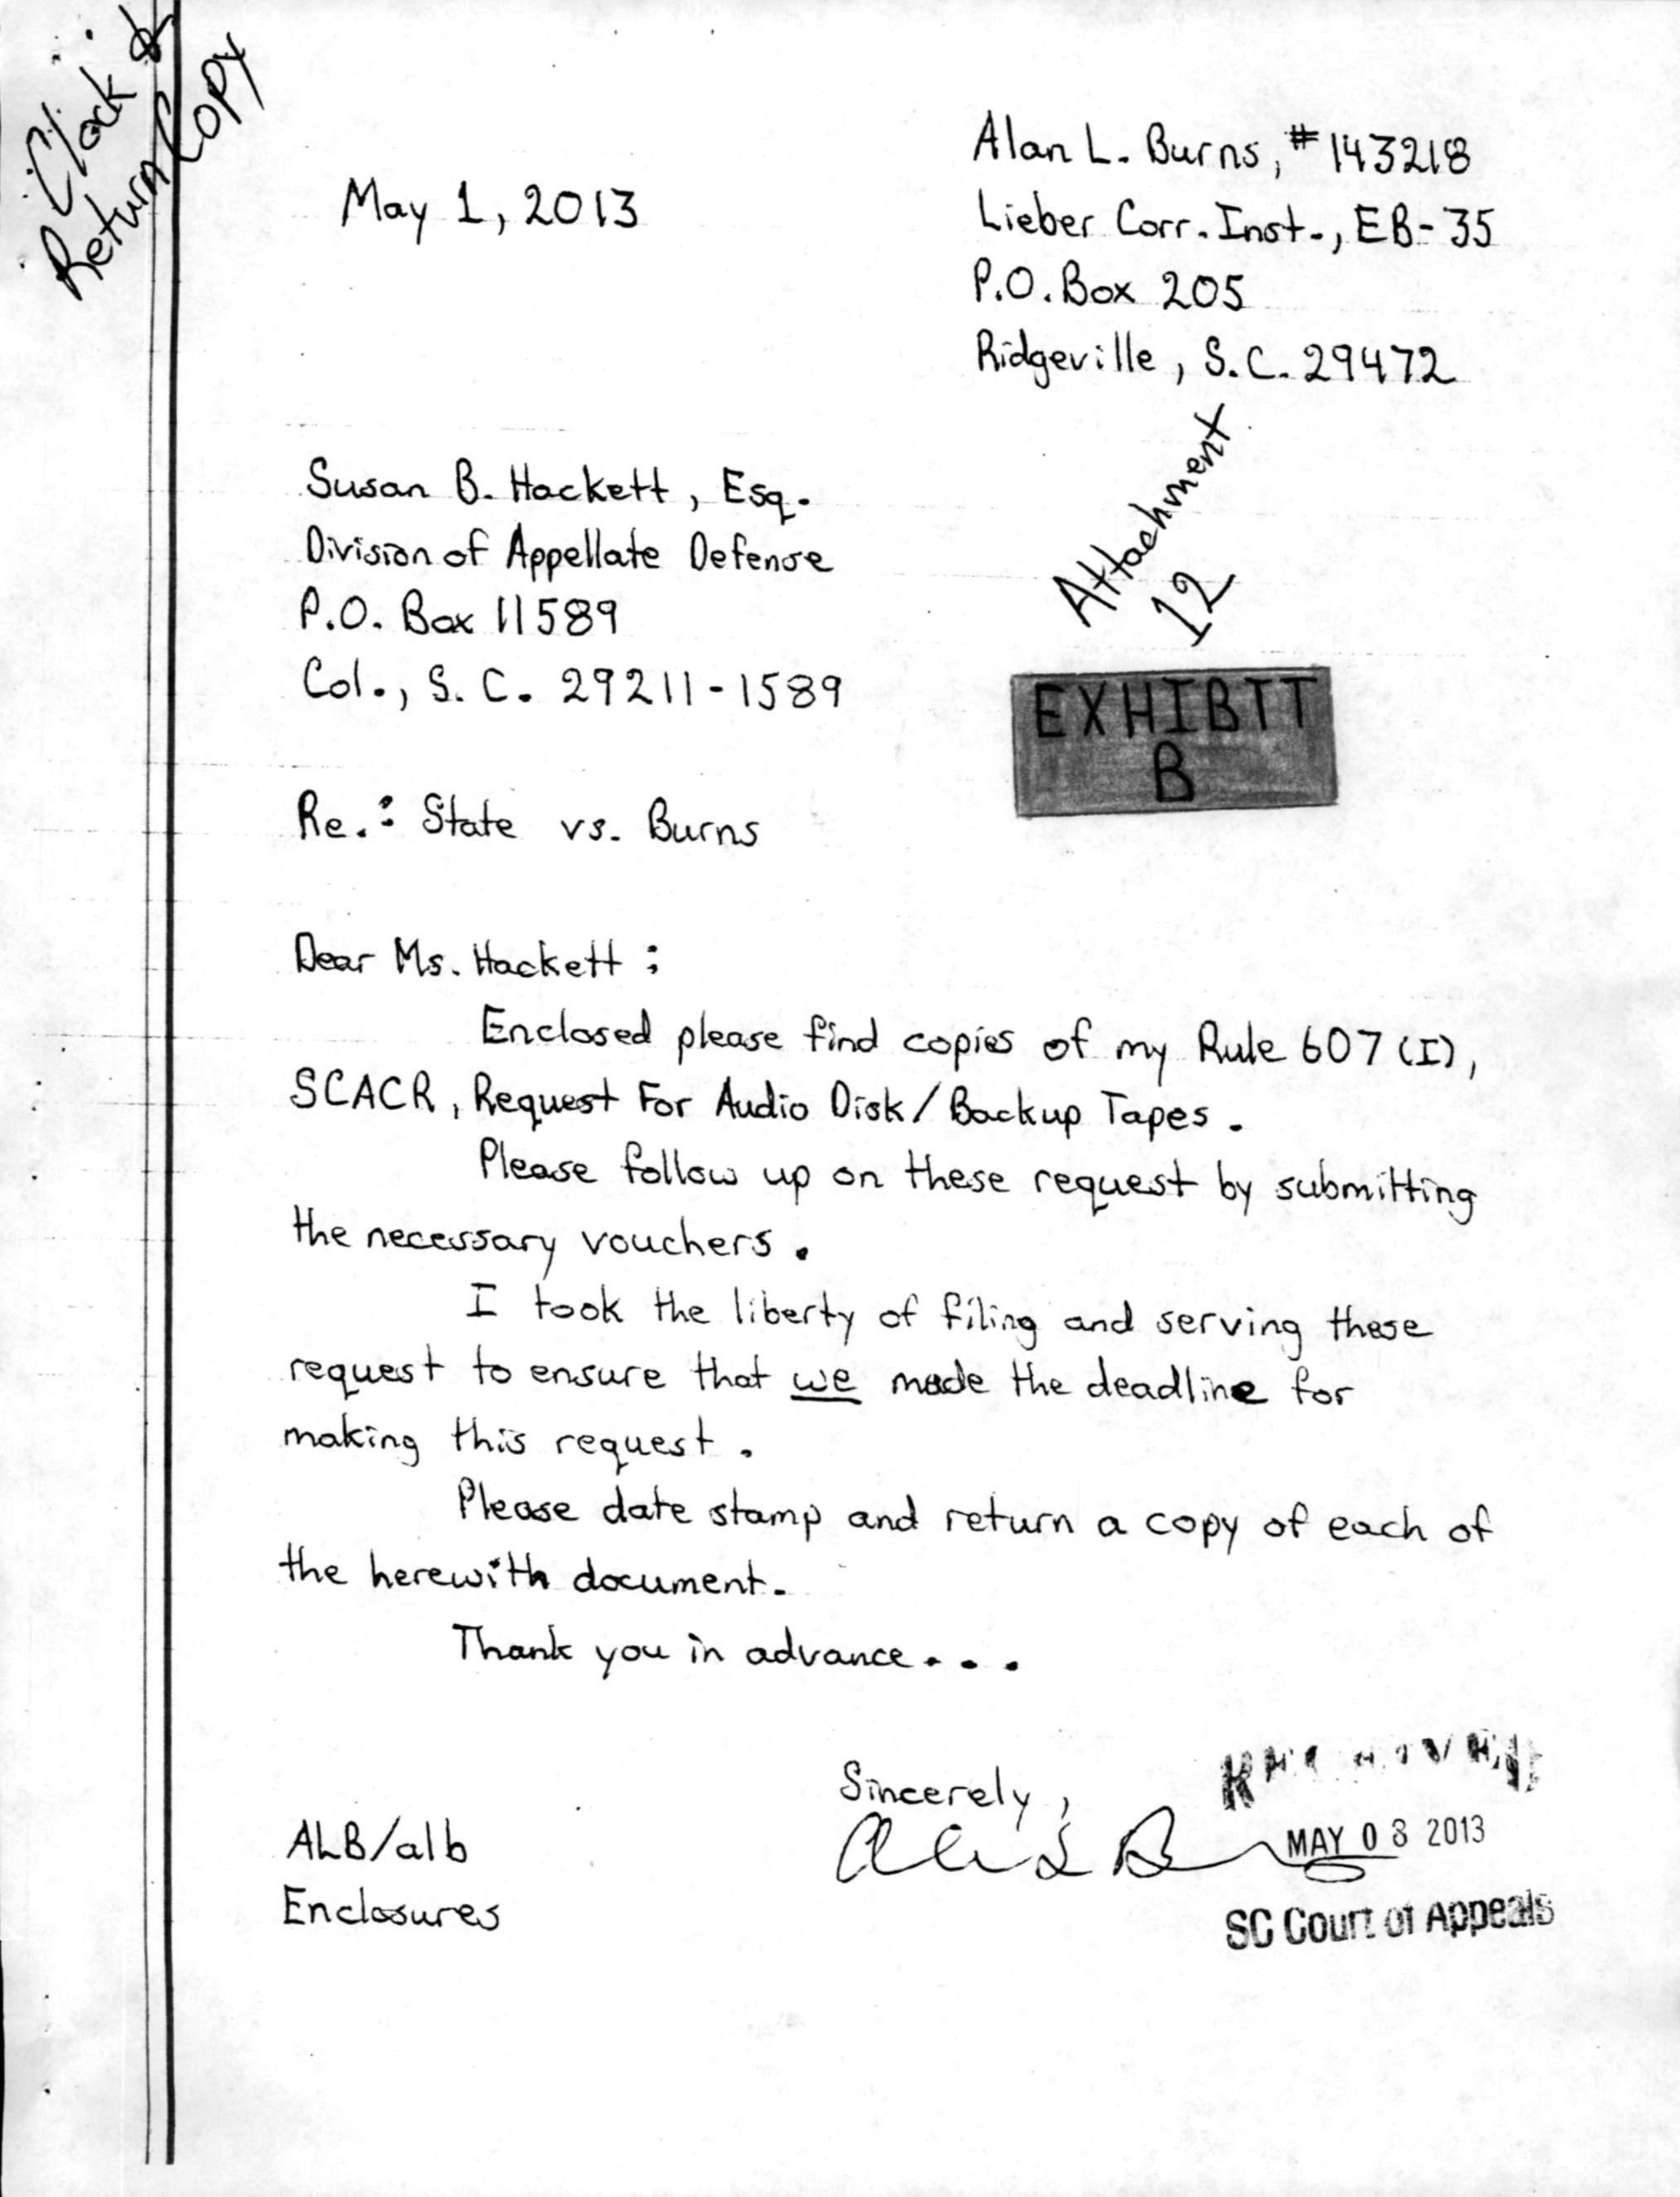 Clock &
Return Copy
May 1, 2013
Alan L. Burns, #143218
Lieber Corr. Inst., EB-35
P.O. Box 205
Ridgeville, S.C. 29472
Susan B. Hackett, Esq.
Division of Appellate Defense
P.O. Box 11589
Col., S.C. 29211-1589
Attachment
12
EXHIBIT
B
Re.: State vs. Burns
Dear Ms. Hackett:
Enclosed please find copies of my Rule 607 (I),
SCACR, Request For Audio Disk/Backup Tapes.
Please follow up on these request by submitting
the necessary vouchers.
I took the liberty of filing and serving these
request to ensure that we made the deadline for
making this request.
Please date stamp and return a copy of each of
the herewith document.
Thank you in advance...
Sincerely,
ALB/alb
Enclosures
RECEIVED
MAY 03 2013
SC Court of Appeals